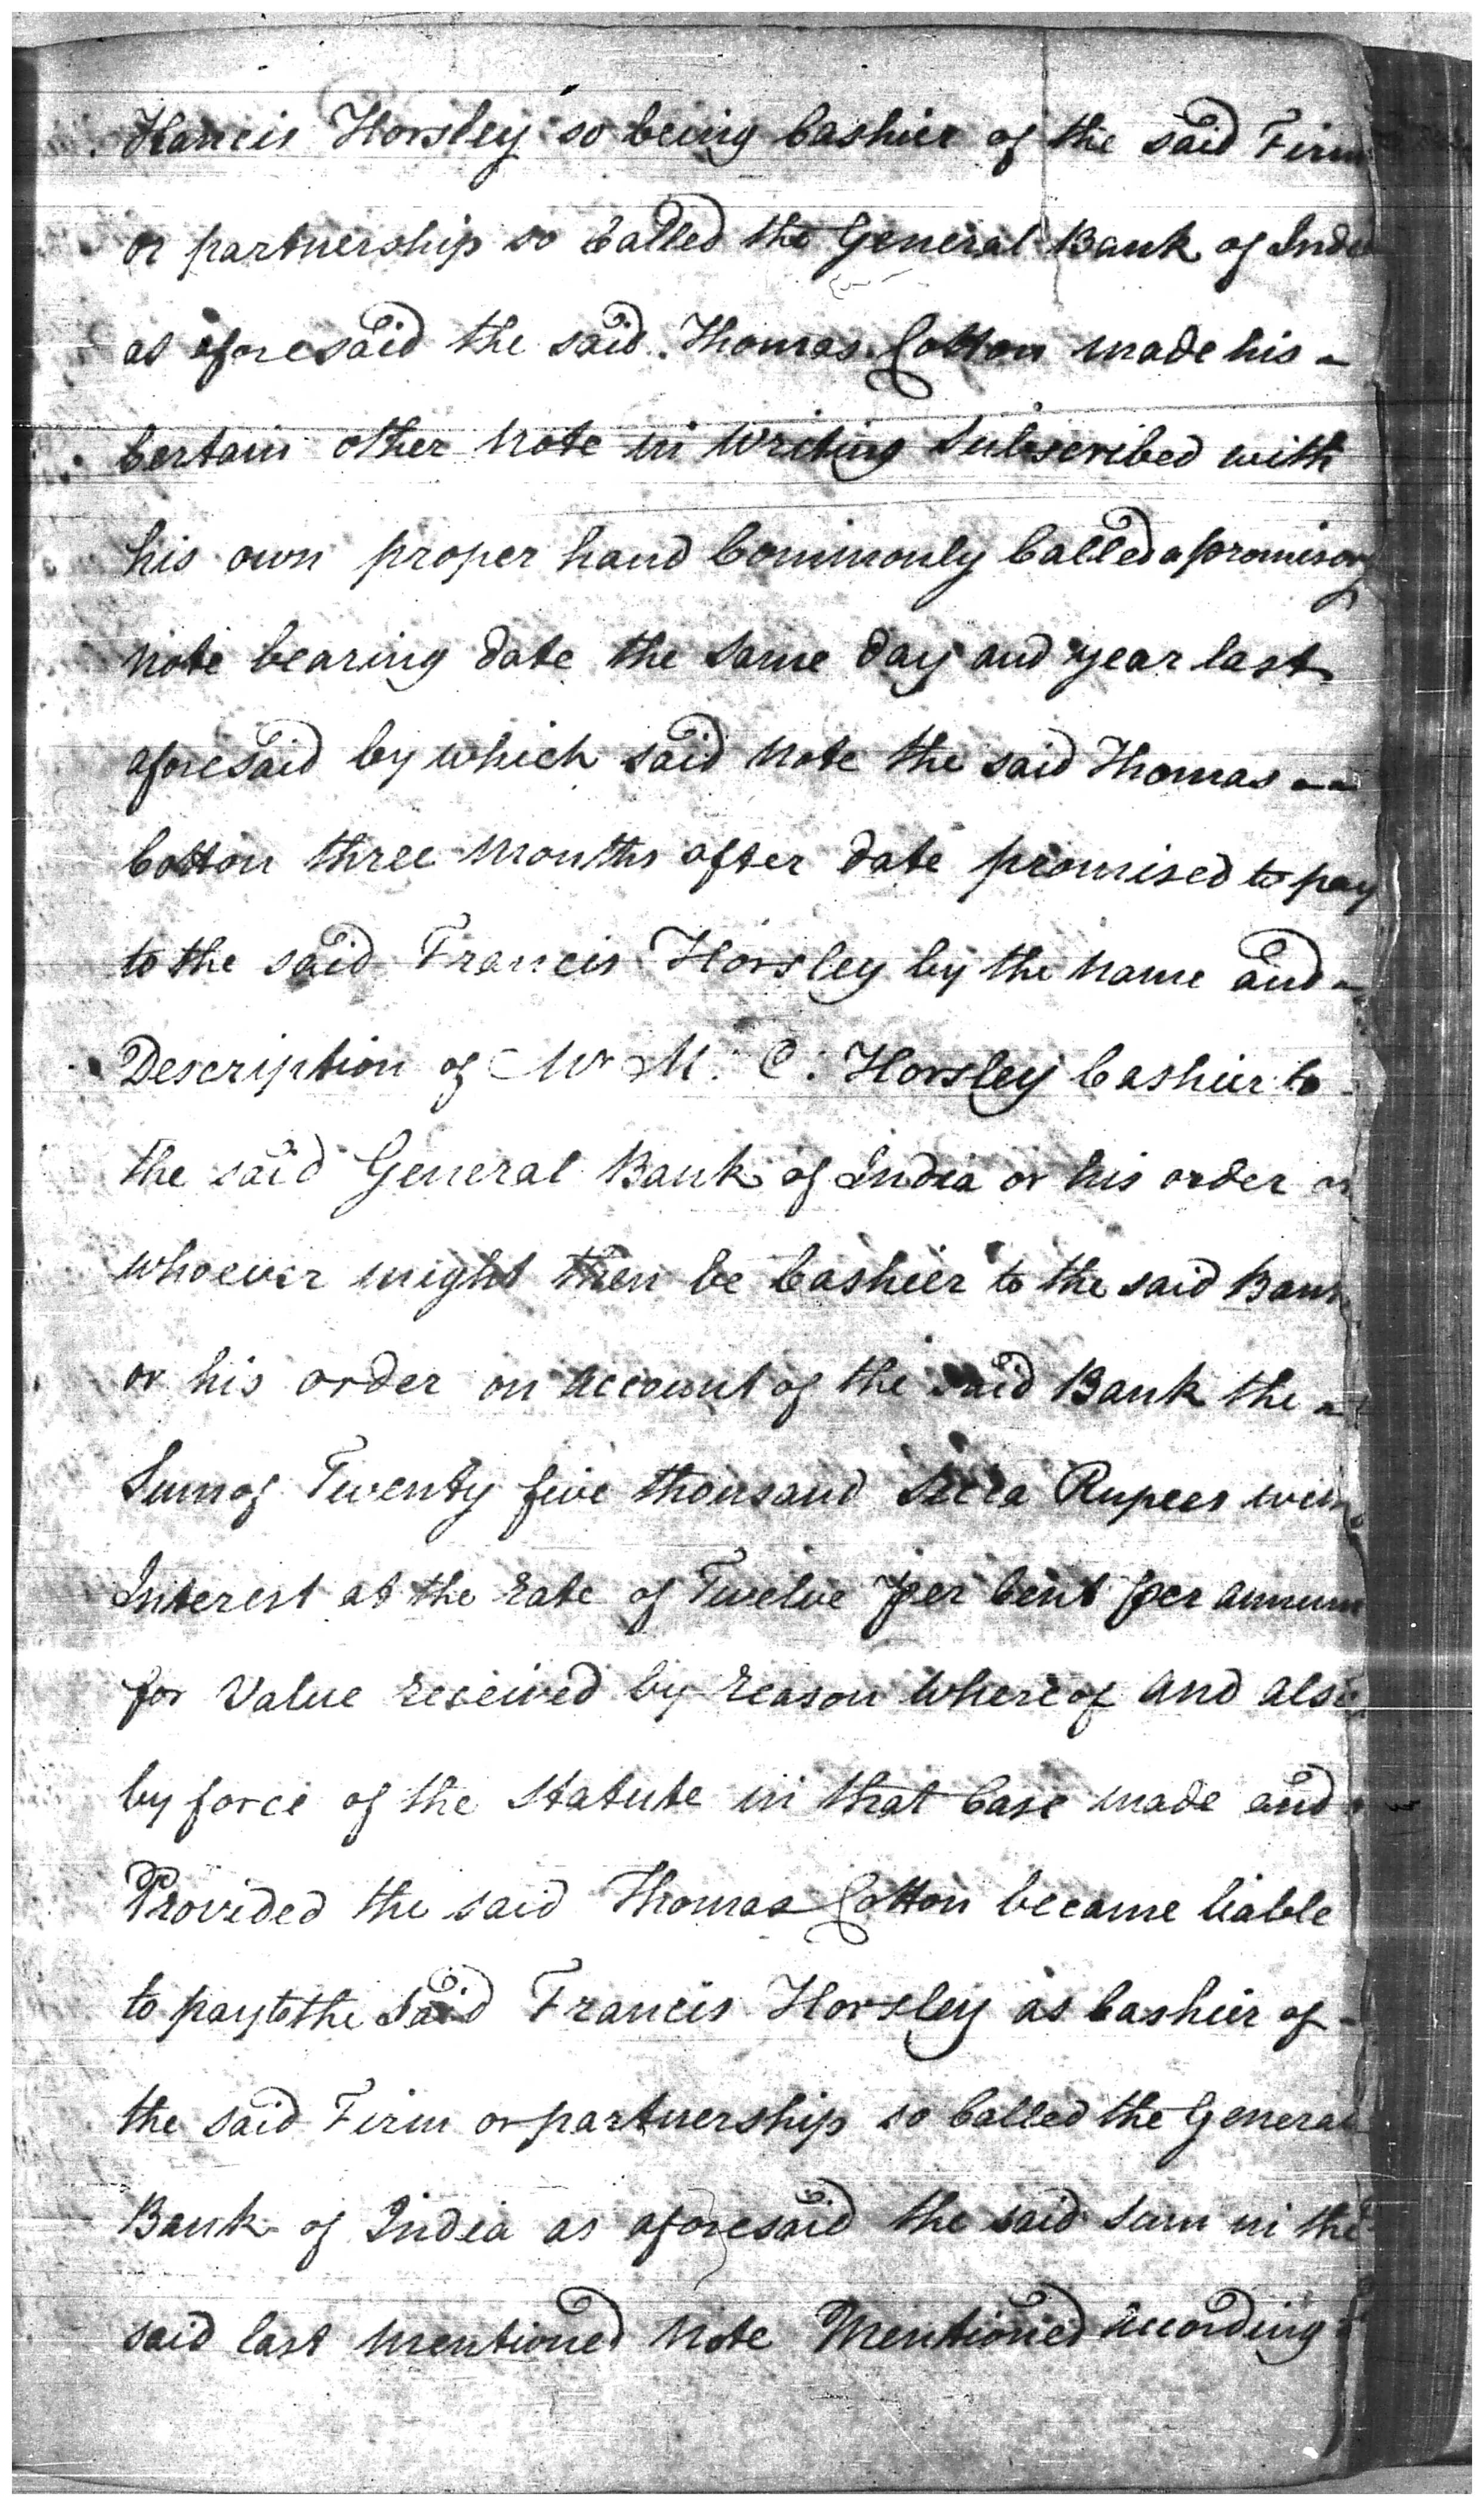 Francis Horsley so being Cashier of the said Firm
or partnership so Called the General Bank of India
as aforesaid the said Thomas Cotton made his -
Certain other Note in Writing Subscribed with
his own proper hand Commonly Called a promisory
Note bearing date the Same day and year last
aforesaid by which said Note the said Thomas --
Cotton three Months after date promised to pay
to the said Francis Horsley by the Name and -
Description of Mr M. C. Horsley Cashier to
the said General Bank of India or his order or
whoever might then be Cashier to the said Bank
or his order on account of the said Bank the -
Sum of Twenty five thousand Sicca Rupees with
Interest at the rate of Twelve per Cent per annum
for Value received by reason whereof and also
by force of the Statute in that Case made and
Provided the said Thomas Cotton became liable
to pay to the Said Francis Horsley as Cashier of -
the said Firm or partnership so Called the General
Bank of India as aforesaid the said Sum in the
said last mentioned Note Mentioned according